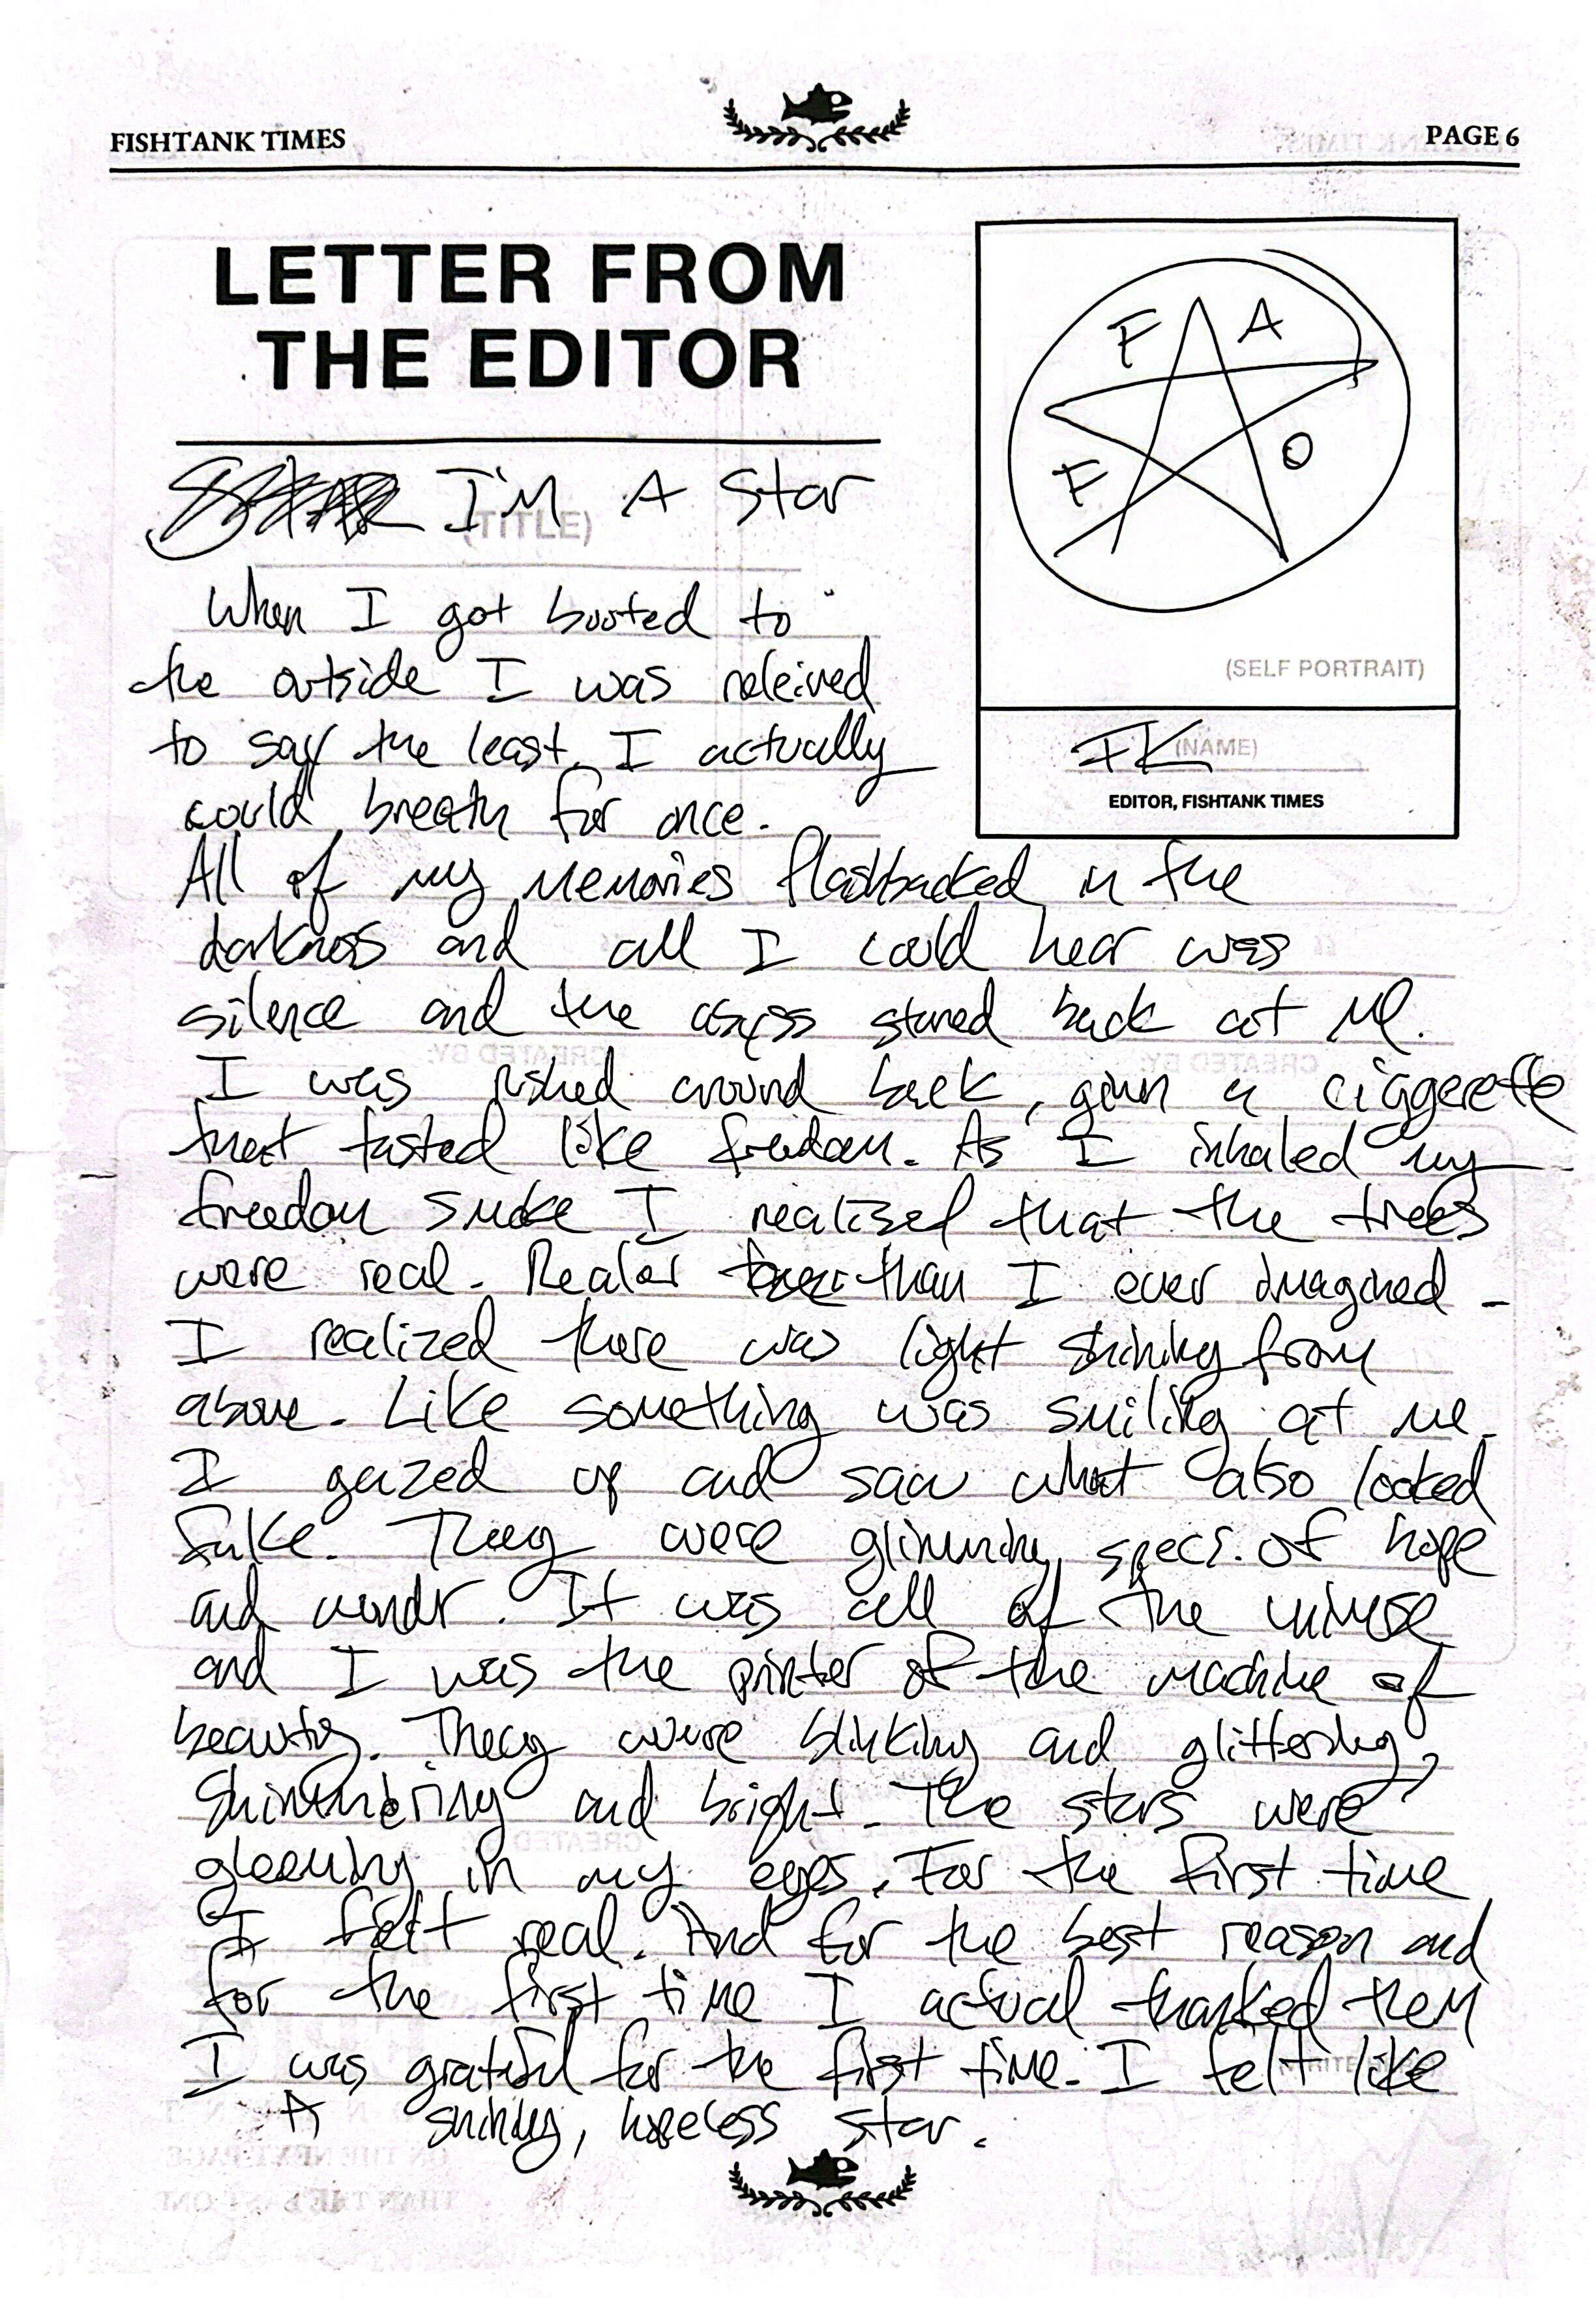 FISHTANK TIMES
PAGE 6
LETTER FROM
THE EDITOR
I'M A Star
(TITLE)
F A
F O
(SELF PORTRAIT)
FK
(NAME)
EDITOR, FISHTANK TIMES
When I got booted to
the outside I was releived
to say the least. I actually
could breath for once.
All of my memories flashbacked in the
darkness and all I could hear was
silence and the abyss stared back at me.
I was rushed around back, given a ciggerette
that tasted like freedom. As I inhaled my
freedom smoke I realized that the trees
were real. Realer than I ever imagined.
I realized there was light shining from
above. Like something was smiling at me.
I gazed up and saw what also looked
fake. They were glimming specs of hope
and wondr. It was all of the universe
and I was the printer of the machine of
beauty. They were blinking and glittering,
Shimmering and bright. The stars were
gleaming in my eyes. For the first time
I felt real. And for the best reason and
for the first time I actual thanked them
I was grateful for the first time. I felt like
A shining, hopeless star.